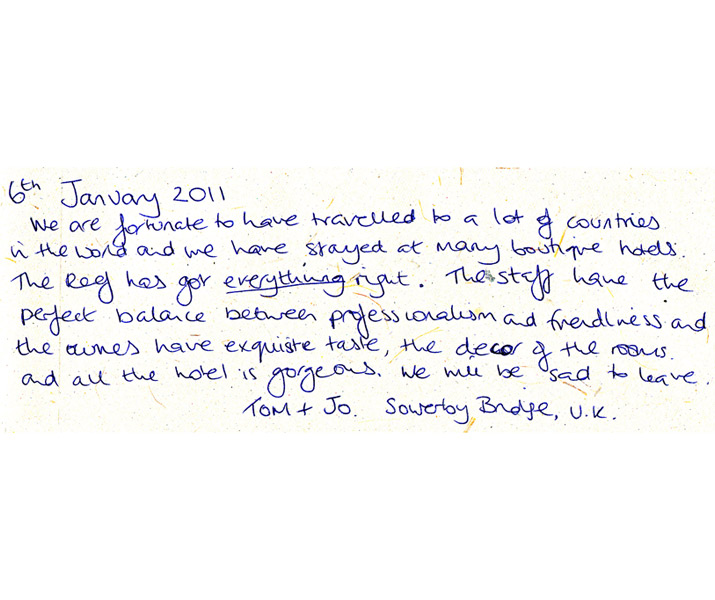 6th January 2011
We are fortunate to have travelled to a lot of countries
in the world and we have stayed at many boutique hotels.
The Reef has got everything right. The staff have the
perfect balance between professionalism and friendliness and
the owners have exquisite taste, the decor of the rooms
and all the hotel is gorgeous. We will be sad to leave.
TOM + Jo. Sowerby Bridge, U.K.